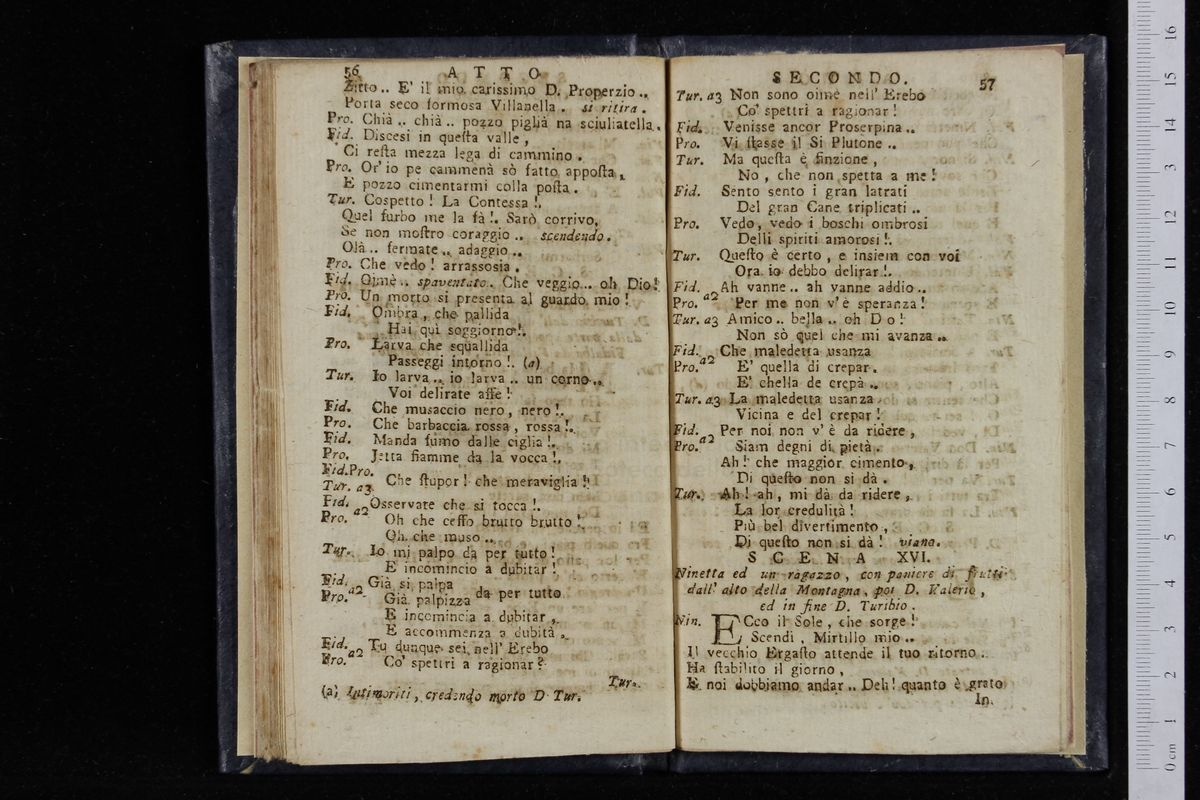 56 ATTO
Zitto.. E' il mio carissimo D. Properzio..
Porta seco formosa Villanella. si ritira.
Pro. Chià.. chià.. pozzo piglià na sciuliatella.
Fid. Discesi in queſta valle,
Ci reſta mezza lega di cammino.
Pro. Or' io pe cammenà sò fatto appoſta,
E pozzo cimentarmi colla poſta.
Tur. Cospetto! La Contessa!.
Quel furbo me la fà!. Sarò corrivo,
Se non moſtro coraggio.. scendendo.
Olà.. fermate.. adaggio..
Pro. Che vedo! arrassosia.
Fid. Oimè.. spaventato. Che veggio... oh Dio!
Pro. Un morto si presenta al guardo mio!
Fid. Ombra, che pallida
Hai quì soggiorno!.
Pro. Larva che squallida
Passeggi intorno!. (a)
Tur. Io larva.. io larva.. un corno..
Voi delirate affè!
Fid. Che musaccio nero, nero!.
Pro. Che barbaccia rossa, rossa!.
Fid. Manda fumo dalle ciglia!.
Pro. Jetta fiamme da la vocca!.
Fid.Pro.
Tur. a3 Che ſtupor! che meraviglia!
Fid. a2 Osservate che si tocca!.
Pro. Oh che ceffo brutto brutto!.
Oh che muso..
Tur. Io mi palpo da per tutto!
E incomincio a dubitar!
Fid. a2 Già si palpa da per tutto
Pro. Già palpizza
E incomincia a dubitar,
E accommenza a dubità,
Fid. a2 Tu dunque sei nell' Erebo
Pro. Co' spettri a ragionar?
Tur.
(a) Intimoriti, credendo morto D Tur.
SECONDO. 57
Tur. a3 Non sono oimè nell' Erebo
Co' spettri a ragionar!
Fid. Venisse ancor Proserpina..
Pro. Vi ſtasse il Si Plutone..
Tur. Ma queſta è finzione,
No, che non spetta a me!
Fid. Sento sento i gran latrati
Del gran Cane triplicati..
Pro. Vedo, vedo i boschi ombrosi
Delli spiriti amorosi!.
Tur. Queſto è certo, e insiem con voi
Ora io debbo delirar!.
Fid. a2 Ah vanne.. ah vanne addio..
Pro. Per me non v' è speranza!
Tur. a3 Amico.. bella.. oh D o!
Non sò quel che mi avanza..
Fid. a2 Che maledetta usanza
Pro. E' quella di crepar.
E' chella de crepà..
Tur. a3 La maledetta usanza
Vicina e del crepar!
Fid. a2 Per noi non v' è da ridere,
Pro. Siam degni di pietà.
Ah! che maggior cimento,
Di queſto non si dà.
Tur. Ah! ah, mi dà da ridere,
La lor credulità!
Più bel divertimento,
Di queſto non si dà! viano.
SCENA XVI.
Ninetta ed un ragazzo, con paniere di frutti
dall' alto della Montagna, poi D. Valerio,
ed in fine D. Turibio.
Nin. ECco il Sole, che sorge!
Scendi, Mirtillo mio..
Il vecchio Ergaſto attende il tuo ritorno..
Ha ſtabilito il giorno,
E noi dobbiamo andar.. Deh! quanto è grato
In.
16
15
14
13
12
11
10
9
8
7
6
5
4
3
2
1
0 cm